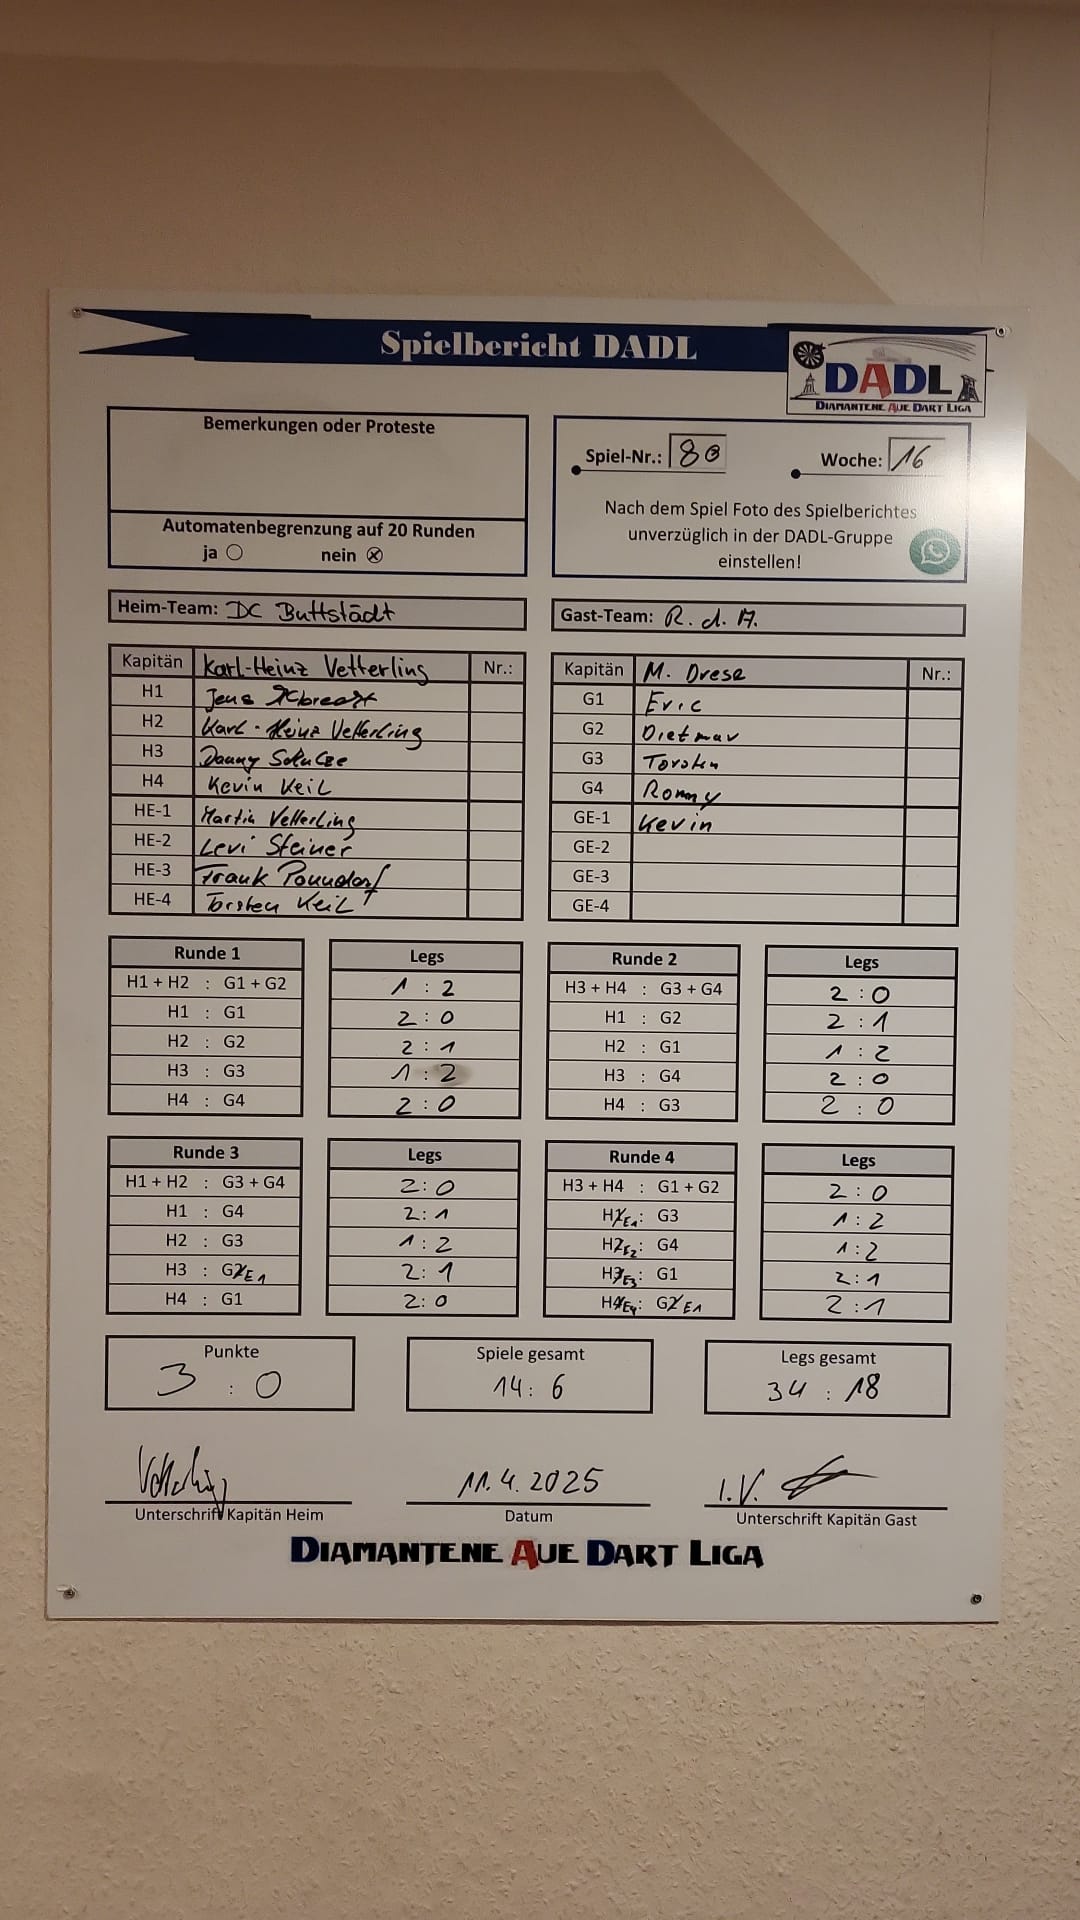 Spielbericht DADL
DADL
DIAMANTENE AUE DART LIGA
Bemerkungen oder Proteste
Automatenbegrenzung auf 20 Runden
ja nein
Spiel-Nr.: 80 Woche: 16
Nach dem Spiel Foto des Spielberichtes
unverzüglich in der DADL-Gruppe
einstellen!
Heim-Team: DC Buttstädt
Gast-Team: R. d. A.
Kapitän Karl-Heinz Vetterling Nr.:
H1 Jens Albrecht
H2 Karl-Heinz Vetterling
H3 Danny Schulze
H4 Kevin Keil
HE-1 Martin Vetterling
HE-2 Levi Steiner
HE-3 Frank Ponndorf
HE-4 Torsten Keil
Kapitän M. Drese Nr.:
G1 Eric
G2 Dietmar
G3 Torsten
G4 Ronny
GE-1 Kevin
GE-2
GE-3
GE-4
Runde 1 Legs
H1 + H2 : G1 + G2 1 : 2
H1 : G1 2 : 0
H2 : G2 2 : 1
H3 : G3 1 : 2
H4 : G4 2 : 0
Runde 2 Legs
H3 + H4 : G3 + G4 2 : 0
H1 : G2 2 : 1
H2 : G1 1 : 2
H3 : G4 2 : 0
H4 : G3 2 : 0
Runde 3 Legs
H1 + H2 : G3 + G4 2 : 0
H1 : G4 2 : 1
H2 : G3 1 : 2
H3 : G2 E1 2 : 1
H4 : G1 2 : 0
Runde 4 Legs
H3 + H4 : G1 + G2 2 : 0
H1 E1 : G3 1 : 2
H2 E2 : G4 1 : 2
H3 E3 : G1 2 : 1
H4 E4 : G2 E1 2 : 1
Punkte
3 : 0
Spiele gesamt
14 : 6
Legs gesamt
34 : 18
11.4.2025
I.V.
Unterschrift Kapitän Heim
Datum
Unterschrift Kapitän Gast
DIAMANTENE AUE DART LIGA